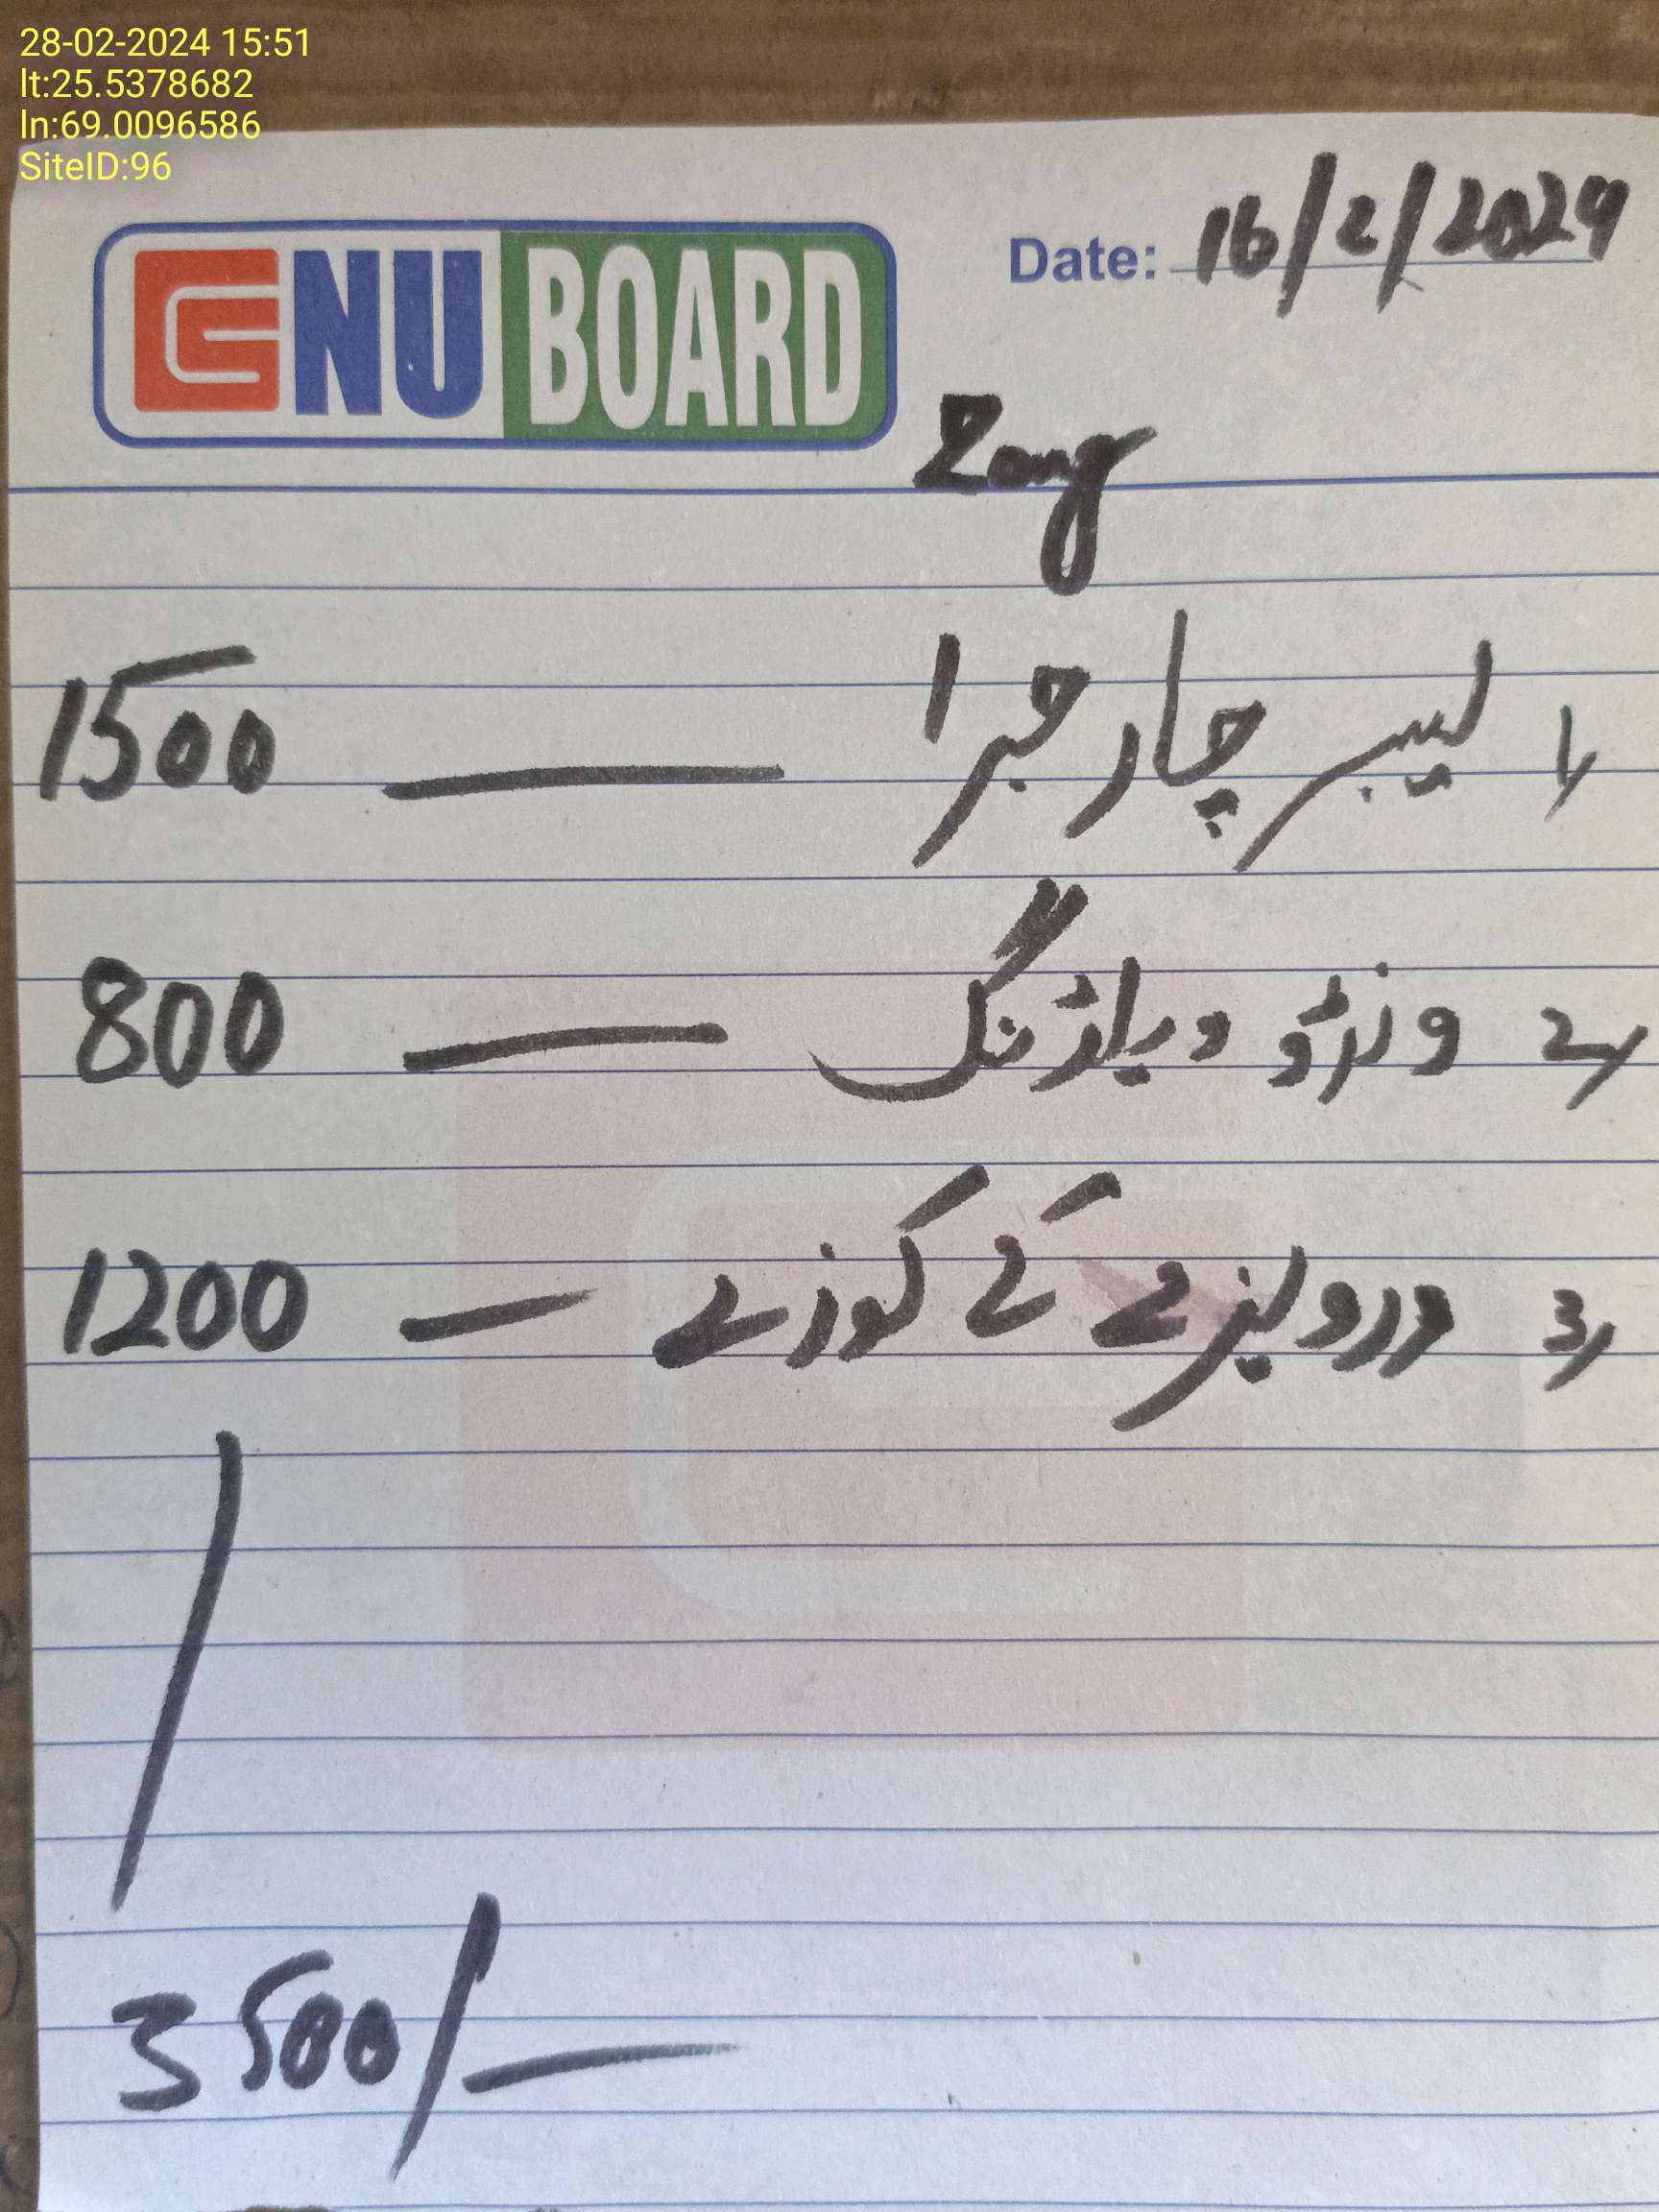 28-02-2024 15:51
lt:25.5378682
ln:69.0096586
SiteID:96
GNU BOARD
Date: 16/2/2024
Zong
1/ لیبر چارجز 1500
2/ ونڈو ویلڈنگ — 800
3/ کے کوزے — 1200
3500/—